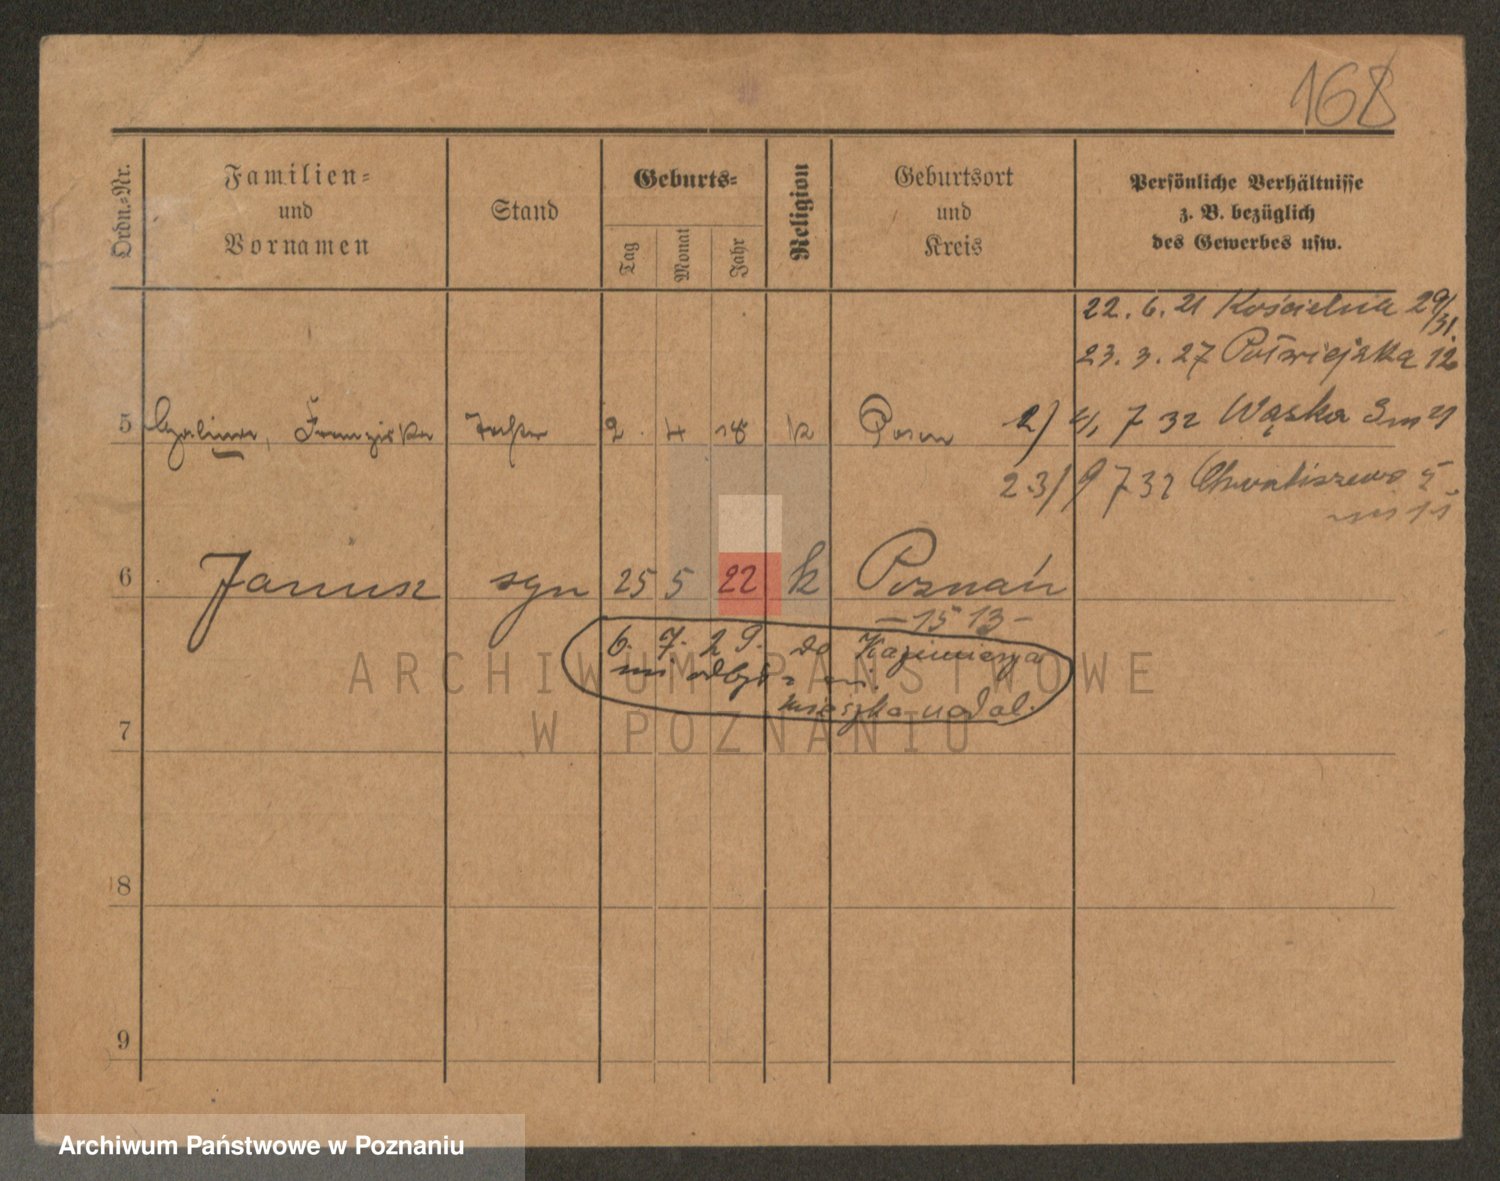 168
Ordn.-Nr.
Familien-
und
Vornamen
Stand
Geburts-
Tag
Monat
Jahr
Religion
Geburtsort
und
Kreis
Persönliche Verhältnisse
z. B. bezüglich
des Gewerbes usw.
22. 6. 21 Kościelna 29/31.
23. 3. 27 Półwiejska 12
5 Franziska Tochter 2 4 18 k Posen
2) 4/7 32 Wąska 3 m 21
23/9 732 Chwaliszewo 5
m 15
6 Janusz syn 25 5 22 k Poznań
-1513-
6. 7. 29. do Kazimierza
mieszka nadal.
7
8
9
ARCHIWUM PAŃSTWOWE
W POZNANIU
Archiwum Państwowe w Poznaniu